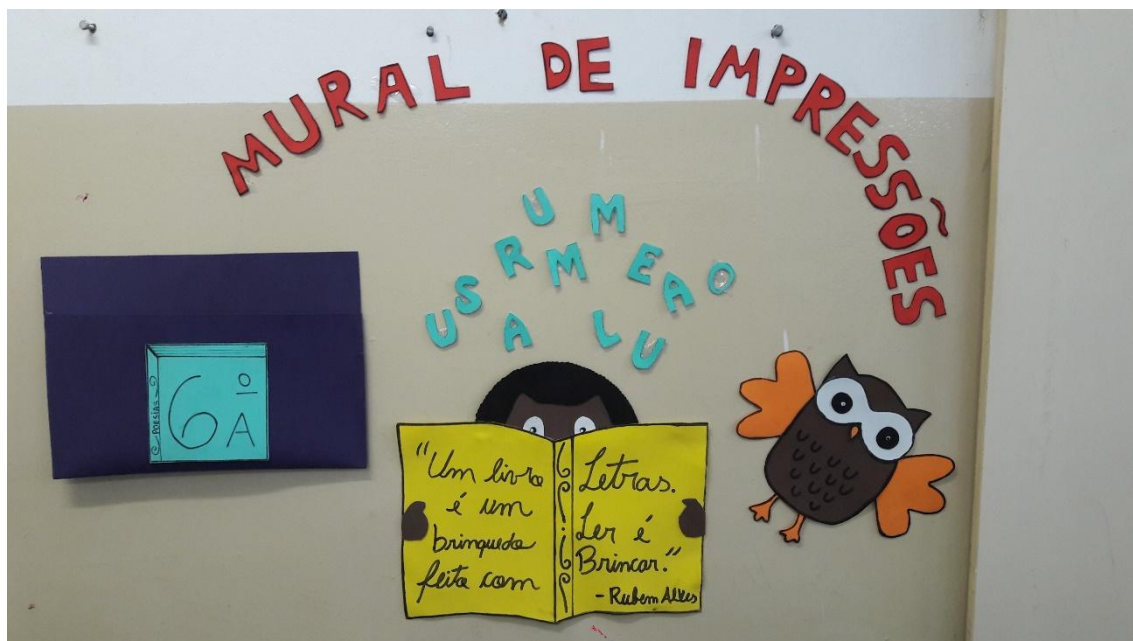 MURAL DE IMPRESSÕES
U M
R M E A O
U S A L U
POESIAS
6º
A
"Um livro
é um
brinquedo
feito com
Letras.
Ler é
Brincar."
- Rubem Alves